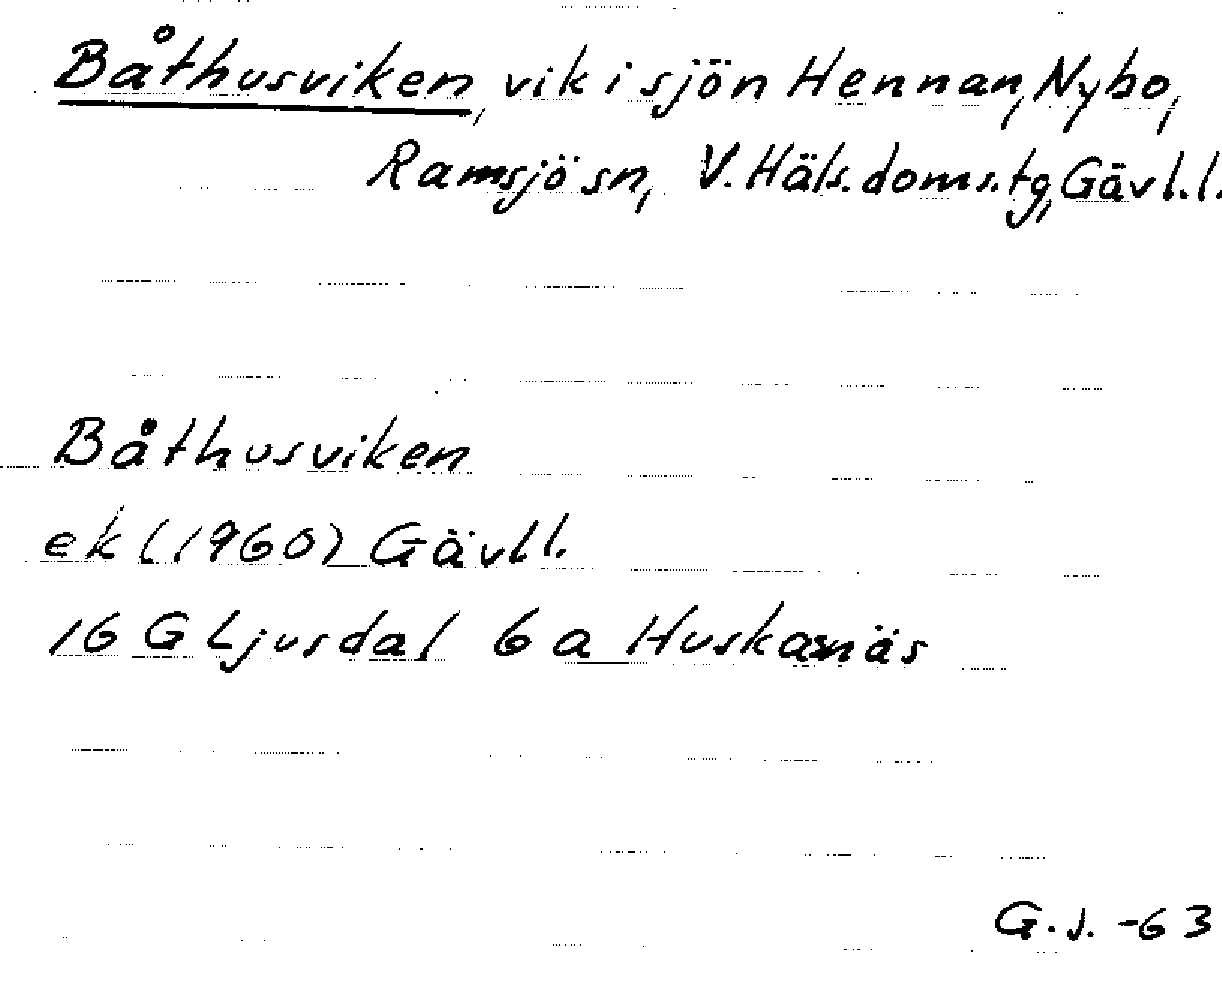 Båthusviken, vik i sjön Hennan, Nybo,
Ramsjö sn, V. Häls. doms.tg, Gävl.l.
Båthusviken
ek (1960) Gävl l.
16 G Ljusdal 6 a Huskasnäs
G.J. -63